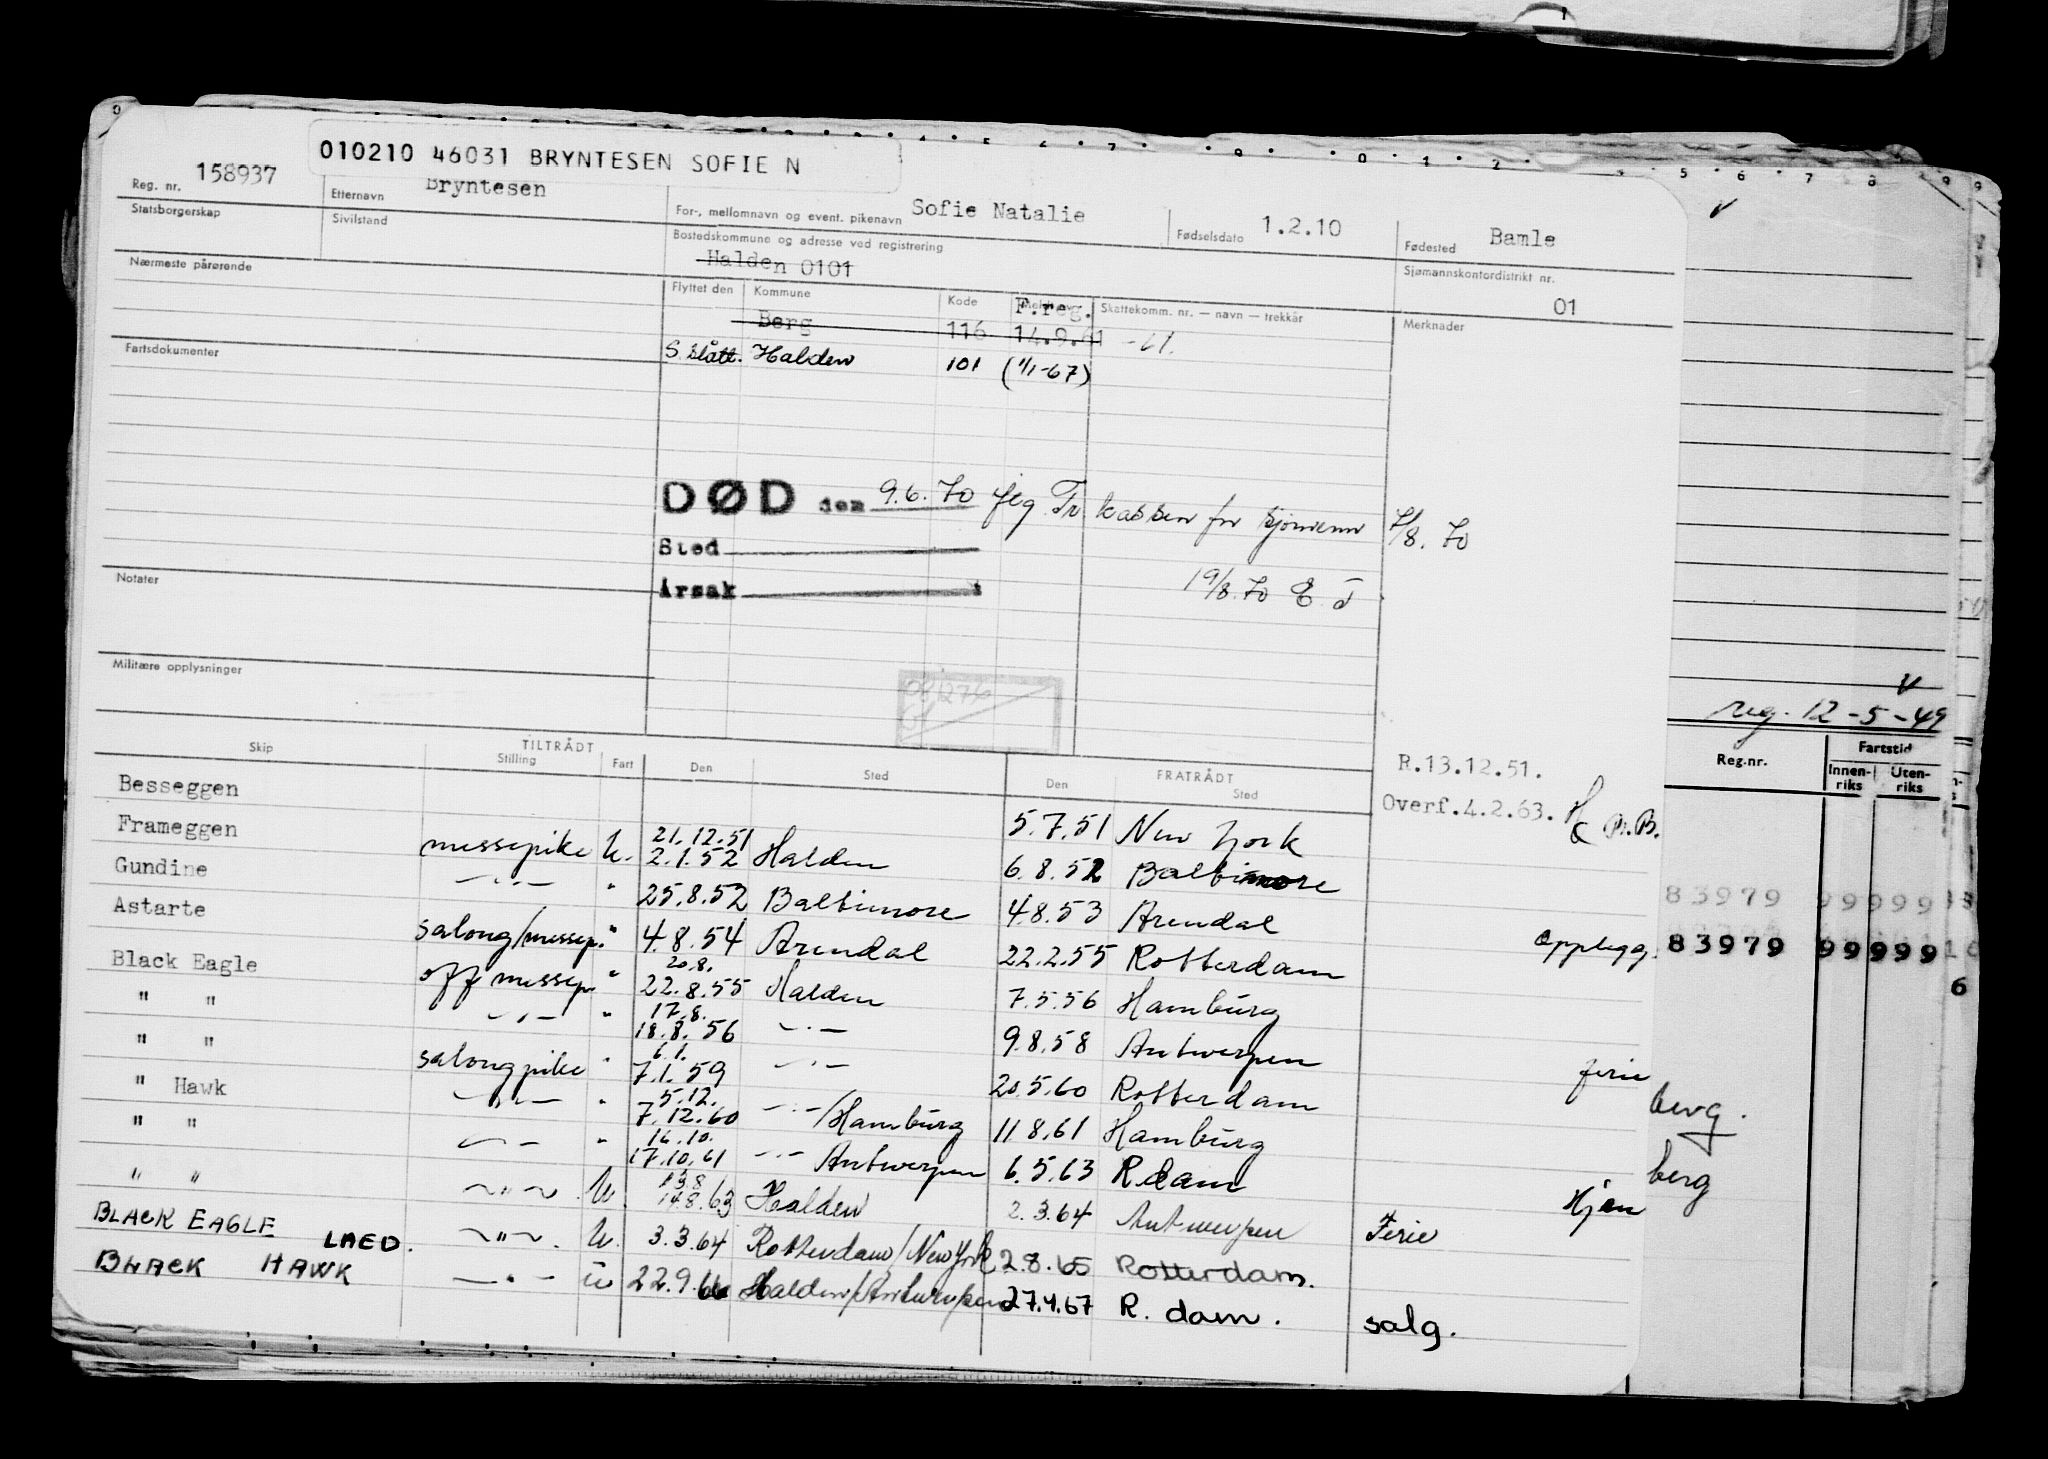 010210 46031 BRYNTESEN SOFIE N
Reg. nr. 158937 Etternavn Bryntesen For-, mellomnavn og event. pikenavn Sofie Natalie Fødselsdato 1.2.10 Fødested Bamle
Statsborgerskap Sivilstand Bostedskommune og adresse ved registrering Halden 0101 Sjømannskontordistrikt nr. 01
Nærmeste pårørende Flyttet den Kommune Kode F.reg. Skattekomm. nr. — navn — trekkår Merknader
Berg 116 14.9.61 -61.
Fartsdokumenter S. slått. Halden 101 (1/1-67)
DØD den 9.6.70 flg. Tr. kassen for sjømenn 7/8. 70
Sted
Årsak 19/8.70 E. T.
Notater
Militære opplysninger
reg. 12-5-49
Skip TILTRÅDT Stilling Fart Den Sted FRATRÅDT Den Sted R.13.12.51.
Overf.4.2.63. P.B.
Reg.nr. Fartstid Innen-riks Uten-riks
Besseggen 5.7.51 New York
Frameggen messepike U. 21.12.51 2.1.52 Halden 6.8.52 Baltimore
Gundine —"— " 25.8.52 Baltimore 4.8.53 Arendal
83979 99999 13
Astarte salong/messep. " 4.8.54 Arendal 22.2.55 Rotterdam Opplegg.
83979 99999 1
Black Eagle off messep. " 20.8. 22.8.55 Halden 7.5.56 Hamburg
6
" " —"— " 17.8. 18.8.56 —"— 9.8.58 Antwerpen
" " salongpike " 6.1. 7.1.59 —"— 20.5.60 Rotterdam ferie
" Hawk —"— " 5.12. 7.12.60 —"—/Hamburg 11.8.61 Hamburg berg.
" " —"— " 16.10. 17.10.61 —"— Antwerpen 6.5.63 R.dam berg
" " —"— U. 13.8 14.8.63 Halden 2.3.64 Antwerpen Ferie Hjem
BLACK EAGLE LAED. —"— U. 3.3.64 Rotterdam/New York 2.8.65 Rotterdam.
BLACK HAWK —"— U 22.9.66 Halden/Antwerpen 27.4.67 R. dam. salg.